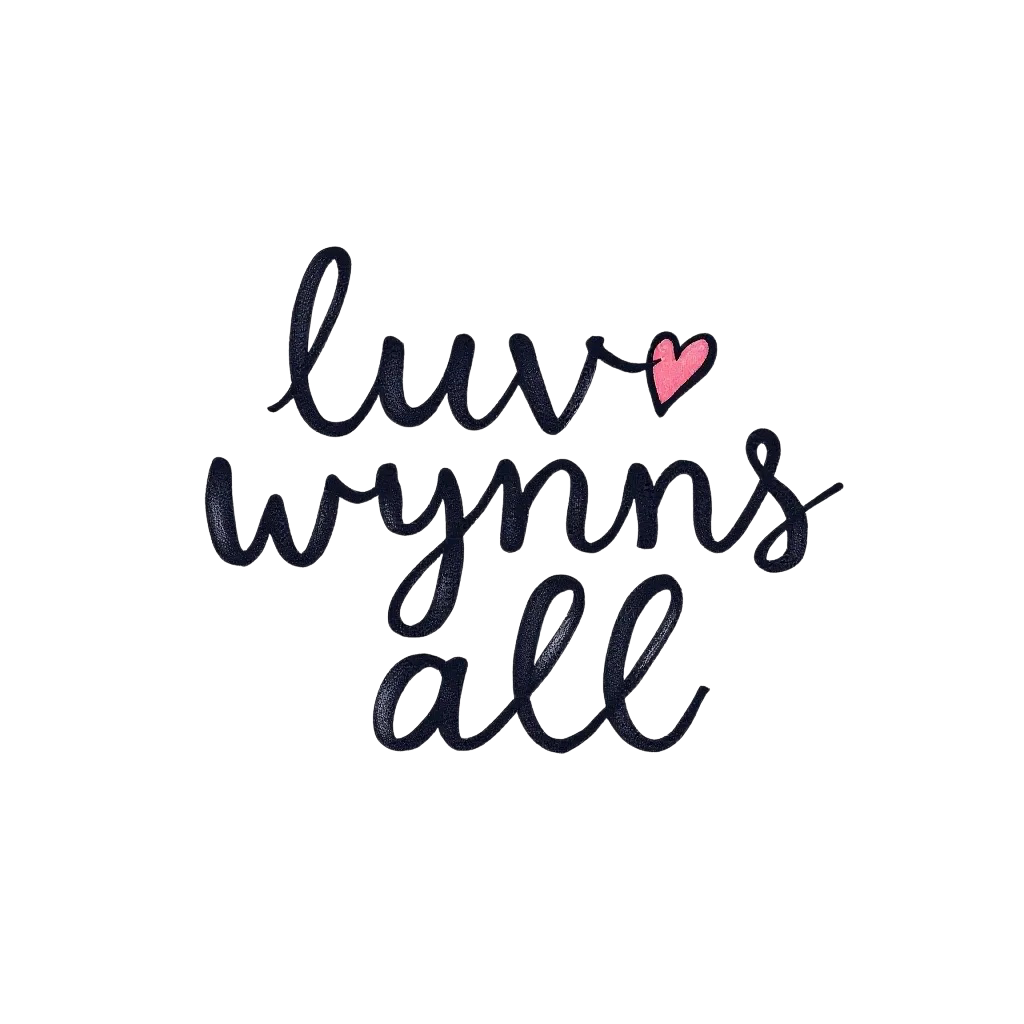 luv
wynns
all